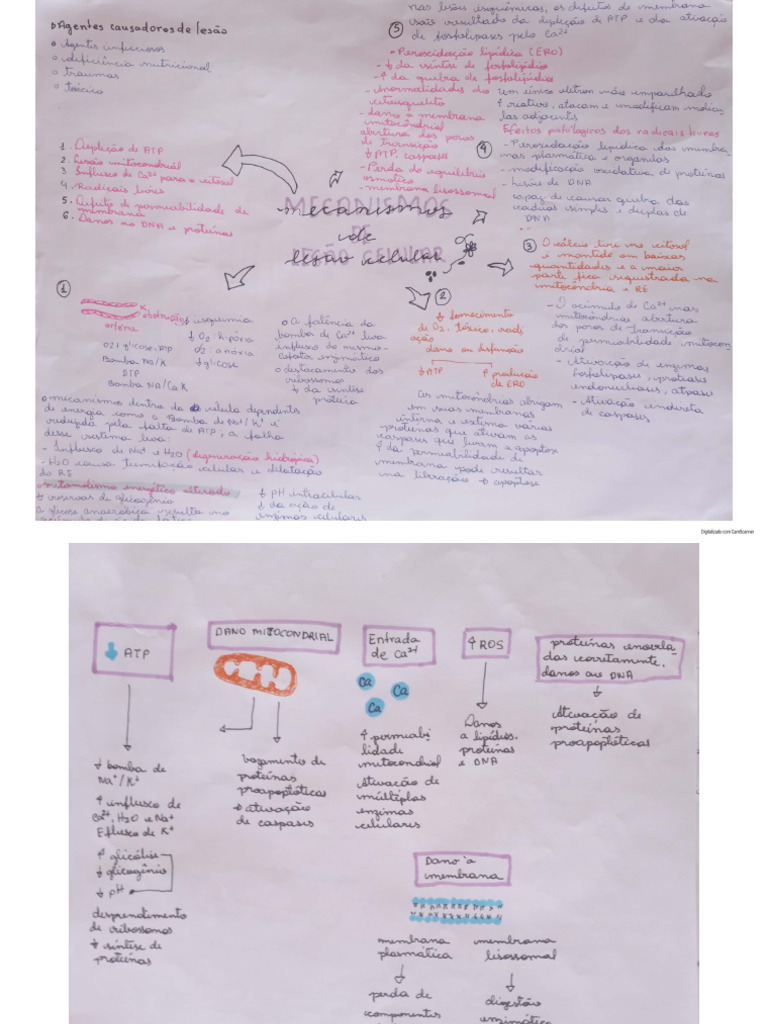 Agentes causadores de lesão
o Agentes infecciosos
o deficiência nutricional
o traumas
o tóxico
1. Depleção de ATP
2. Lesão mitocondrial
3 Influxo de Ca²⁺ para o citosol
4. Radicais livres
5. Defeito de permeabilidade de
membrana
6. Danos ao DNA e proteínas
MECANISMOS
DE
LESÃO CELULAR
mecanismos
de
lesão celular
1
K
obstrução
artéria
O2 glicose ATP
Bomba Na/K
ATP
Bomba Na/Ca K
↓ isquemia
↓ O2: hipóxia
O2: anóxia
↓ glicose
o A falência da
bomba de Ca²⁺ leva
influxo do mesmo-
efeitos enzimático
o destacamento dos
ribossomos
↓ da síntese
proteica
o mecanismos dentro da célula dependentes
de energia como a Bomba de Na⁺/K⁺ é
reduzida pela falta de ATP; a falha
desse sistema leva:
- Influxo de Na⁺ e H2O (degeneração hidrópica)
- H2O causa tumefação celular e dilatação
do RE
o metabolismo energético alterado
↓ reservas de glicogênio
a glicose anaeróbica resulta no
↓ pH intracelular
↓ da ação de
enzimas celulares
2
↓ fornecimento
de O2. tóxico, radi
ação
dano ou disfunção
↓ ATP
↑ produção
de ERO
As mitocôndrias abrigam
em suas membranas
interna e externa várias
proteínas que ativam as
caspases que levam a apoptose
↑ da permeabilidade de
membrana pode resultar
na libração → apoptose
3
O cálcio livre no citosol
é mantido em baixas
quantidades e a maior
parte fica sequestrada na
mitocôndria e RE
- O acúmulo de Ca²⁺ nas
mitocôndrias abertura
dos poros de transição
de permeabilidade mitocon
drial
- Ativação de enzimas
fosfolipases, proteases
endonucleases, atpases
- Ativação indireta
de caspases
4
tem único elétron não emparelhado
↑ reativo, atacam e modificam molécu
las adjacentes
Efeitos patológicos dos radicais livres
- Peroxidação lipídica das membra
nas plasmática e organelas
- modificação oxidativa de proteínas
- lesões de DNA
capaz de causar quebra das
cadeias simples e duplas de
DNA
5
nas lesões isquêmicas, os defeitos de membrana
são resultado da depleção de ATP e da ativação
de fosfolipases pelo Ca²⁺
- Peroxidação lipídica (ERO)
- ↓ da síntese de fosfolipídio
- ↑ da quebra de fosfolipídio
- Anormalidades do
citoesqueleto
- dano à membrana
mitocôndrial
abertura dos poros
de transição
↓ ATP, caspases
- Perda do equilíbrio
osmótico
- membrana lisossomal
Digitalizado com CamScanner
↓ ATP
DANO MITOCONDRIAL
Entrada
de Ca²⁺
↑ ROS
proteínas enovela
das corretamente.
danos ao DNA
Ca
Ca
Ca
↓ bomba de
Na⁺/K⁺
↑ influxo de
Ca²⁺, H2O e Na⁺
Efluxo de K⁺
↑ glicólise
↓ glicogênio
↓ pH
desprendimento
de ribossomos
↓ síntese de
proteínas
vazamento de
proteínas
proapoptóticas
→ ativação
de caspases
↑ permeabi
lidade
mitocondrial
Ativação de
múltiplas
enzimas
celulares
Danos
a lipídios.
proteínas
e DNA
Ativação de
proteínas
proapoptóticas
Dano à
membrana
membrana
plasmática
perda de
componentes
membrana
lisossomal
digestão
enzimática